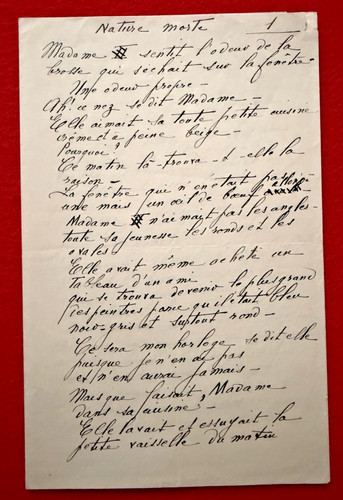 Nature morte 1
Madame sentit l'odeur de la
brosse qui séchait sur la fenêtre
Une odeur propre -
Ah! ce nez se dit Madame -
Elle aimait sa toute petite cuisine
crème et à peine beige -
Pourquoi?
Ce matin là - trouva-t-elle la
raison -
La fenêtre qui n'en était pas
une mais un œil de bœuf
Madame n'aimait pas les angles -
toute sa jeunesse les ronds et les
ovales
Elle avait même acheté un
tableau d'un ami
qui se trouva devenir le plus grand
des peintres parce qu'il était bleu
noir-gris et surtout rond -
Ce sera mon horloge se dit elle
puisque je n'en ai pas
et n'en aurai jamais -
Mais que faisait, Madame
dans sa cuisine -
Elle lavait et essuyait la
petite vaisselle du matin